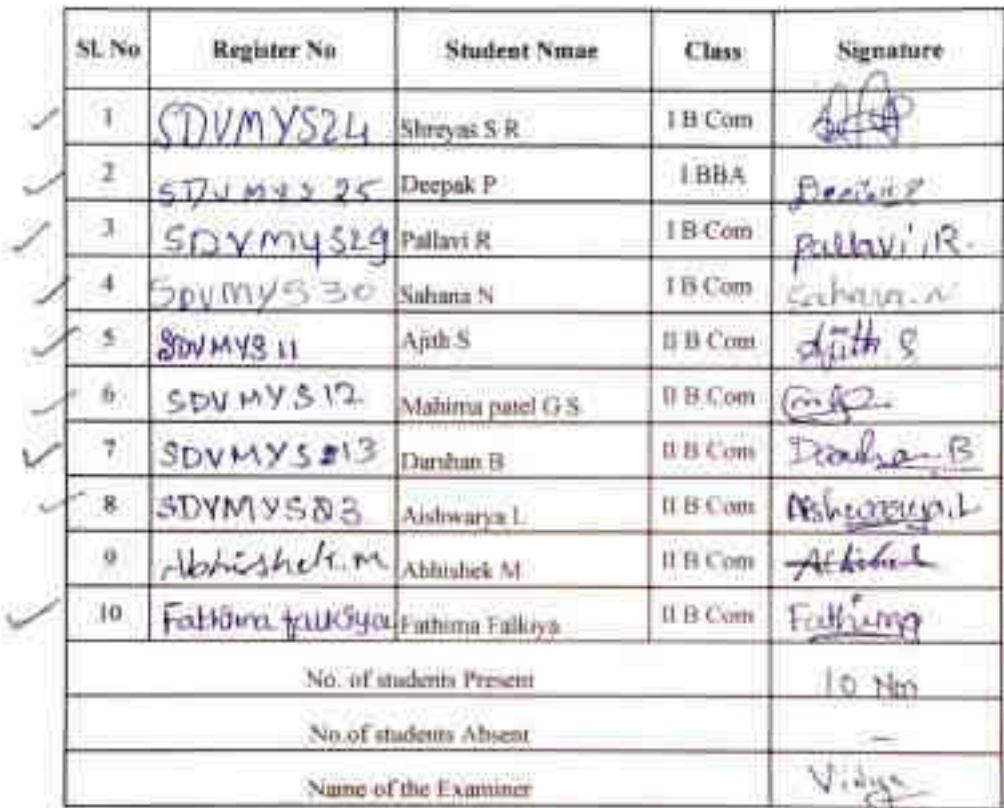 Sl. No Register No Student Nmae Class Signature
1 SDVMYS24 Shreyas S R I B Com
2 SDVMYS 25 Deepak P I BBA Deepak P
3 SDVMYS29 Pallavi R I B Com Pallavi.R.
4 SDVMYS30 Sahana N I B Com Sahana.N
5 SDVMYS 11 Ajith S II B Com Ajith S
6 SDVMYS12 Mahima patel G S II B Com
7 SDVMYS 13 Darshan B II B Com Darshan B
8 SDVMYS03 Aishwarya L II B Com Aishwarya.L
9 Abhishek.M Abhishek M II B Com
10 Fathima falkiya Fathima Falkiya II B Com Fathima
No. of students Present 10
No.of students Absent –
Name of the Examiner Vidya